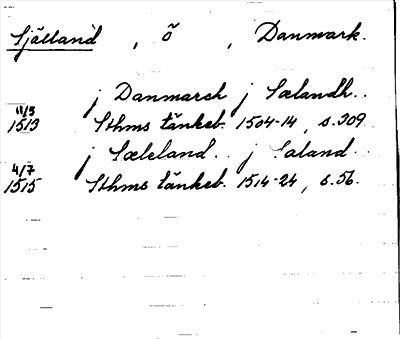 Själland , ö , Danmark.
j Danmarch j Sælandh..
11/3 1513 Sthms tänkeb. 1504-14, s.309
j Sæleland.. j Saland..
4/7 1515 Sthms tänkeb. 1514-24, s.56.